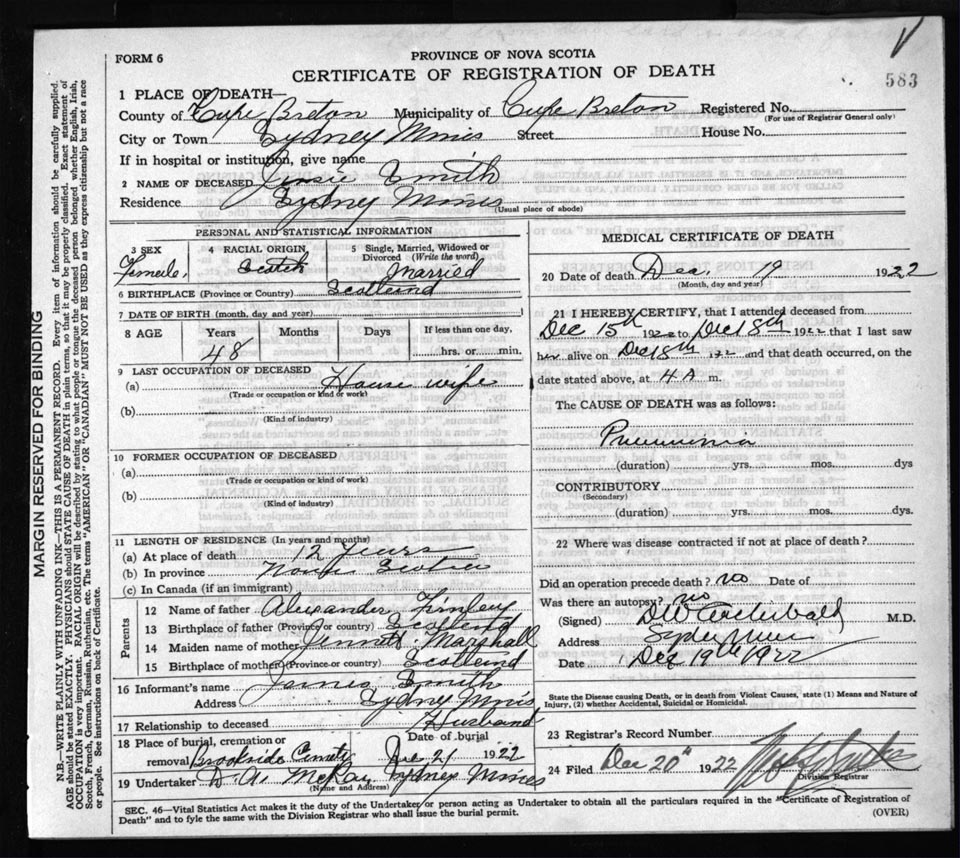 583
FORM 6
PROVINCE OF NOVA SCOTIA
CERTIFICATE OF REGISTRATION OF DEATH
1 PLACE OF DEATH—
County of Cape Breton Municipality of Cape Breton Registered No.
(For use of Registrar General only)
City or Town Sydney Mines Street House No.
If in hospital or institution, give name
2 NAME OF DECEASED Jessie Smith
Residence Sydney Mines
(Usual place of abode)
PERSONAL AND STATISTICAL INFORMATION
3 SEX Female
4 RACIAL ORIGIN, Scotch
5 Single, Married, Widowed or Divorced (Write the word) Married
6 BIRTHPLACE (Province or Country) Scotland
7 DATE OF BIRTH (month, day and year)
8 AGE Years 48 Months Days If less than one day, hrs. or min.
9 LAST OCCUPATION OF DECEASED
(a) House wife
(Trade or occupation or kind or work)
(b)
(Kind of industry)
10 FORMER OCCUPATION OF DECEASED
(a)
(Trade or occupation or kind of work)
(b)
(Kind of industry)
11 LENGTH OF RESIDENCE (In years and months)
(a) At place of death 12 Years
(b) In province Nova Scotia
(c) In Canada (if an immigrant)
Parents
12 Name of father Alexander Finley
13 Birthplace of father (Province or country) Scotland
14 Maiden name of mother Jennett Marshall
15 Birthplace of mother (Province or country) Scotland
16 Informant's name James Smith
Address Sydney Mines
17 Relationship to deceased Husband
18 Place of burial, cremation or removal Brookside Cemetery Date of burial Dec 21 1922
19 Undertaker D. A. McKay Sydney Mines
(Name and Address)
MEDICAL CERTIFICATE OF DEATH
20 Date of death Dec. 19 1922
(Month, day and year)
21 I HEREBY CERTIFY, that I attended deceased from
Dec 15th 1922 to Dec 18th 1922 that I last saw
her alive on Dec 18th 1922 and that death occurred, on the
date stated above, at 4 A m.
The CAUSE OF DEATH was as follows:
Pneumonia
(duration) yrs. mos. dys
CONTRIBUTORY
(Secondary)
(duration) yrs. mos. dys.
22 Where was disease contracted if not at place of death?
Did an operation precede death? no Date of
Was there an autopsy? no
(Signed) Archibald M.D.
Address Sydney Mines
Date Dec 19th 1922
State the Disease causing Death, or in death from Violent Causes, state (1) Means and Nature of
Injury, (2) whether Accidental, Suicidal or Homicidal.
23 Registrar's Record Number
24 Filed Dec 20th 1922
Division Registrar
SEC. 46—Vital Statistics Act makes it the duty of the Undertaker or person acting as Undertaker to obtain all the particulars required in the "Certificate of Registration of
Death" and to fyle the same with the Division Registrar who shall issue the burial permit.
(OVER)
MARGIN RESERVED FOR BINDING
N.B.—WRITE PLAINLY WITH UNFADING INK—THIS IS A PERMANENT RECORD. Every item of information should be carefully supplied.
AGE should be stated EXACTLY. PHYSICIANS should STATE CAUSE OF DEATH in plain terms, so that it may be properly classified. Exact statement of
OCCUPATION is very important. RACIAL ORIGIN will be described by stating to what people or tongue the deceased person belonged, whether English, Irish,
Scotch, French, German, Russian, Ruthenian, etc. The terms "AMERICAN" OR "CANADIAN" MUST NOT BE USED as they express citizenship but not a race
or people. See instructions on back of Certificate.